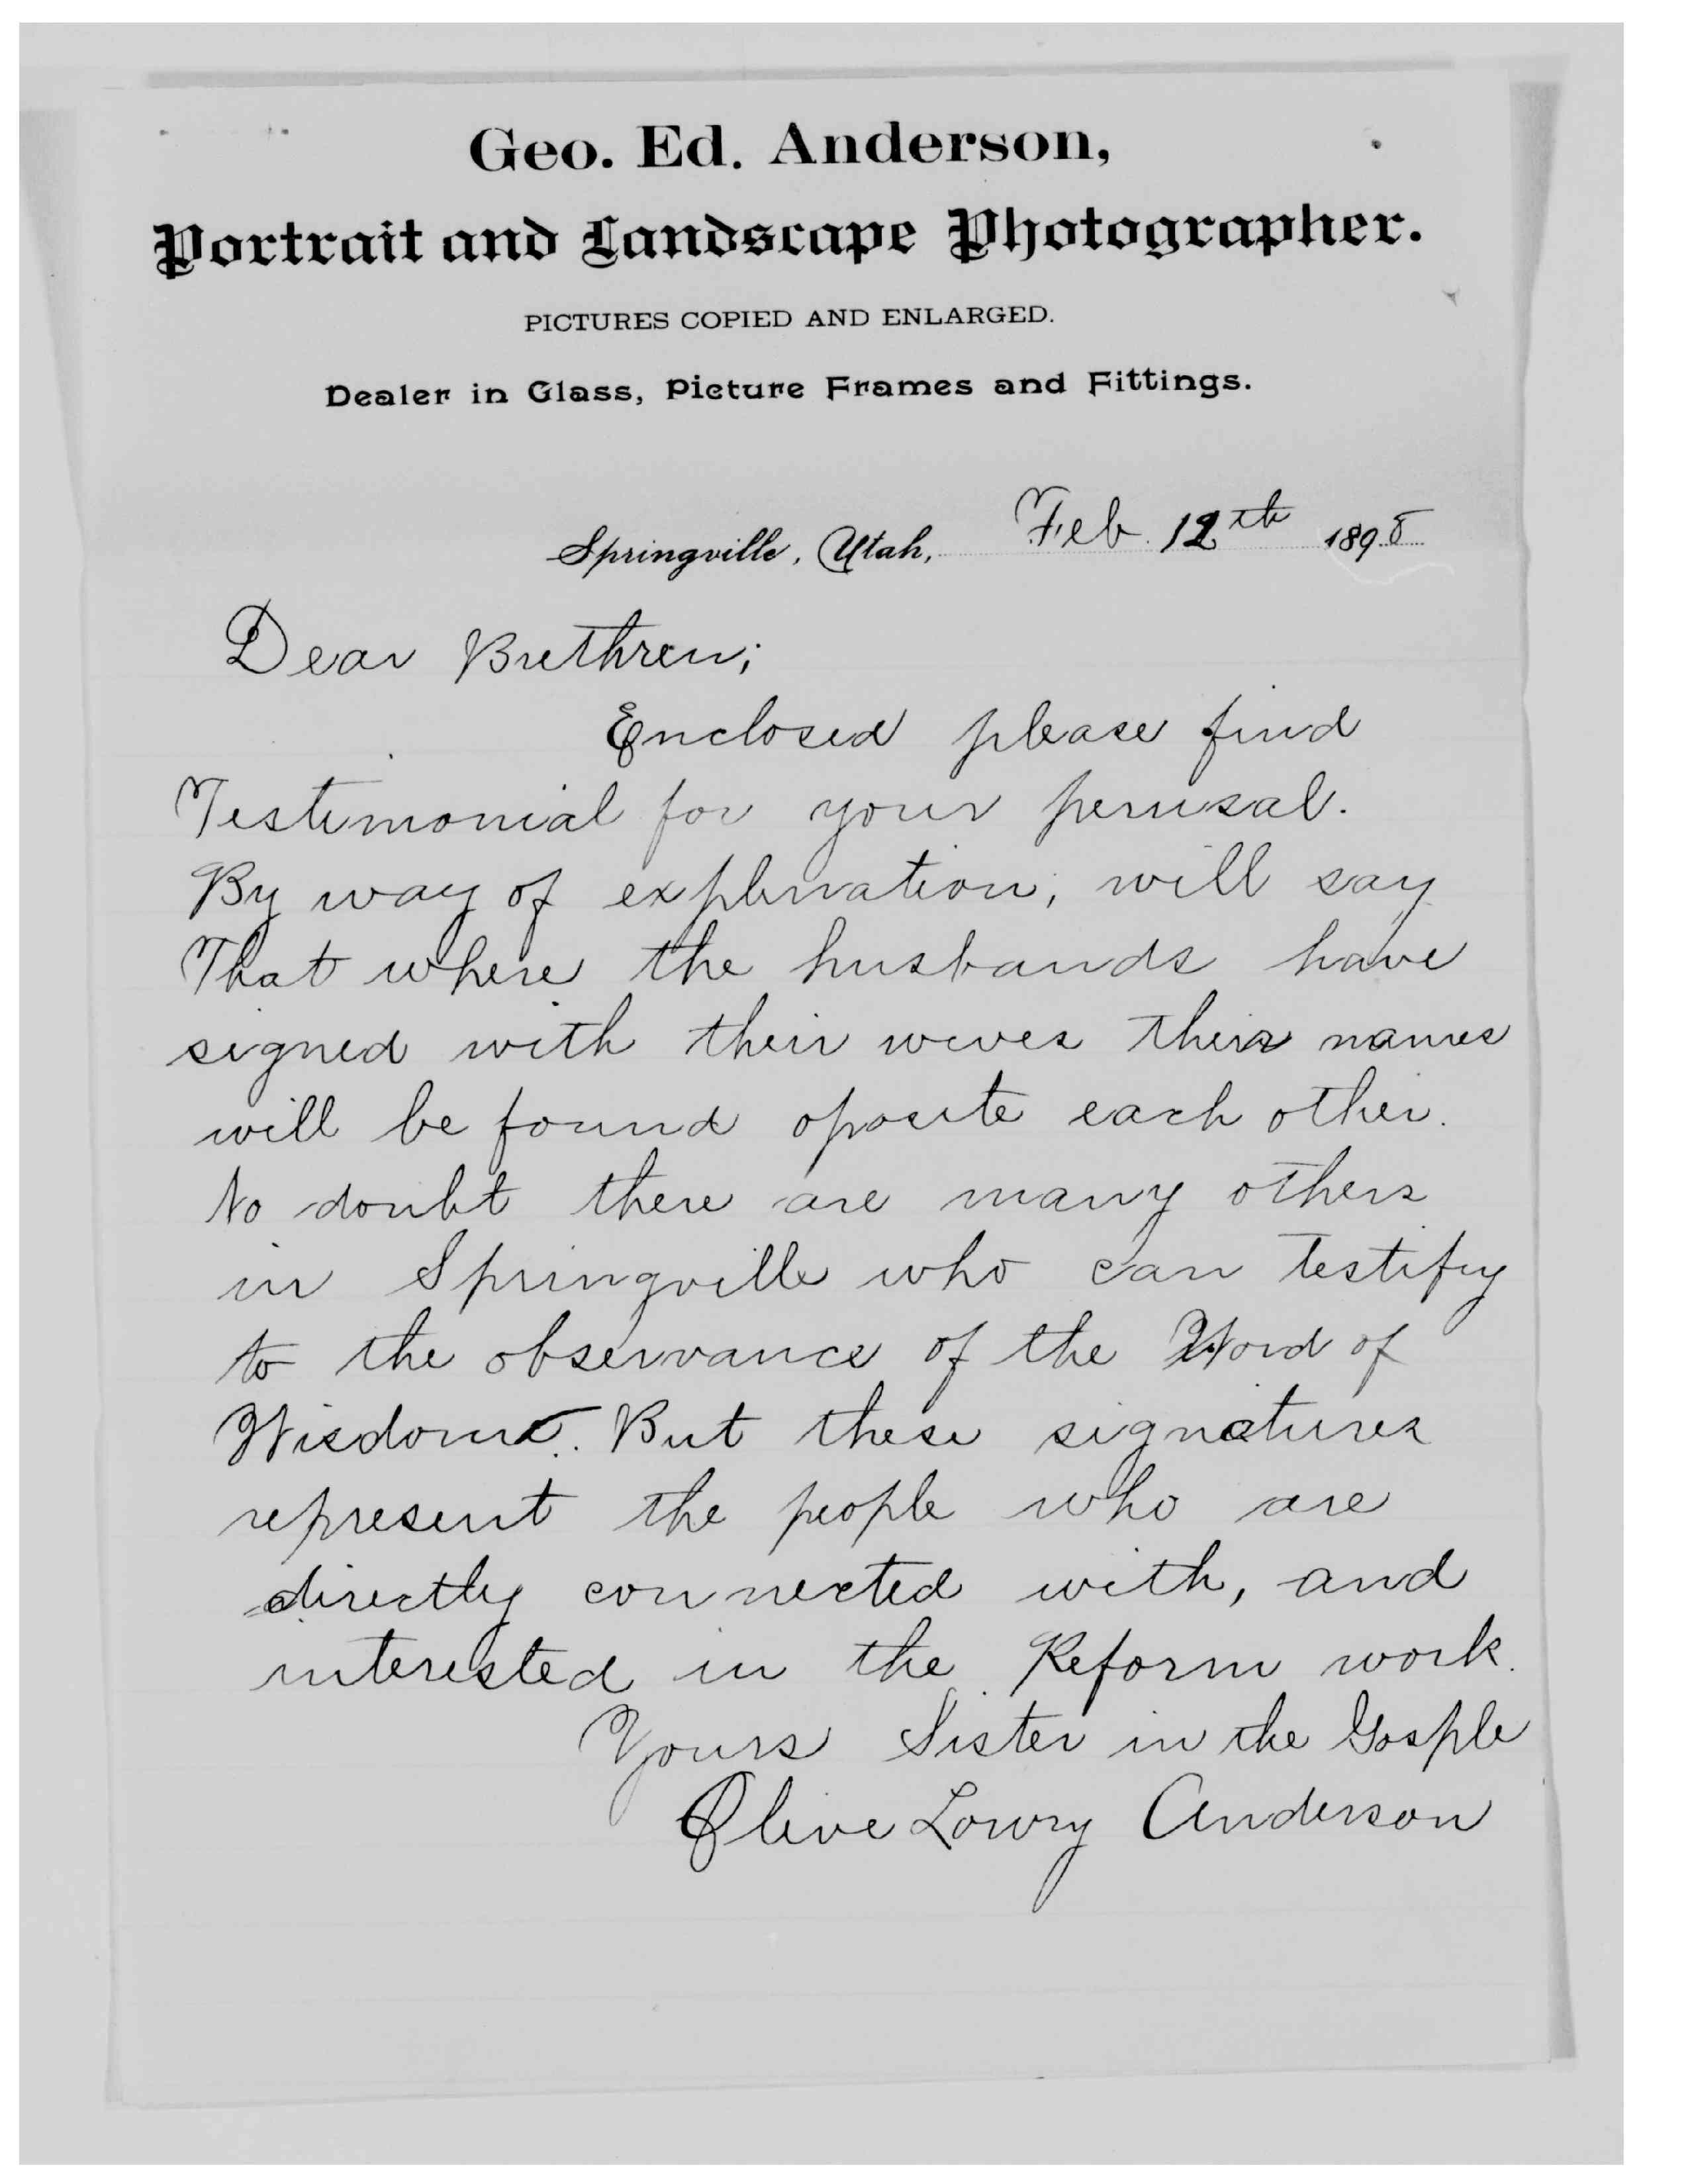 Geo. Ed. Anderson,
Portrait and Landscape Photographer.
PICTURES COPIED AND ENLARGED.
Dealer in Glass, Picture Frames and Fittings.
Springville, Utah, Feb. 12th 1895
Dear Brethren;
Enclosed please find
Testimonial for your perusal.
By way of explination, will say
That where the husbands have
signed with their wives their names
will be found oposite each other.
No doubt there are many others
in Springville who can testify
to the observance of the Word of
Wisdom. But these signatures
represent the people who are
directly connected with, and
interested in the Reform work.
Yours Sister in the Gosple
Olive Lowry Anderson